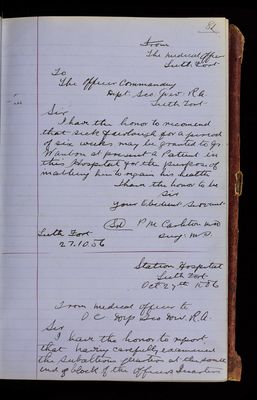 From
The medical officer
Leith Fort
To
The Officer Commanding
Dept. Scot. Div. R.A.
Leith Fort
Sir
I have the honor to recomend
that sick furlough for a period
of six weeks may be granted to Gr.
at present a Patient in
this Hospital for the purpose of
enabling him to regain his health
I have the honor to be
Sir
your obedient Servant
P M Carleton MD
Leith Fort Surg. M.S.
27.10.86
Station Hospital
Leith Fort
Oct 27th 1886
From medical officer to
O C Dep Scot Div R.A.
Sir
I have the honor to report
that having carefully examined
the Subaltern quarters at the south
end of block of the officers Quarters